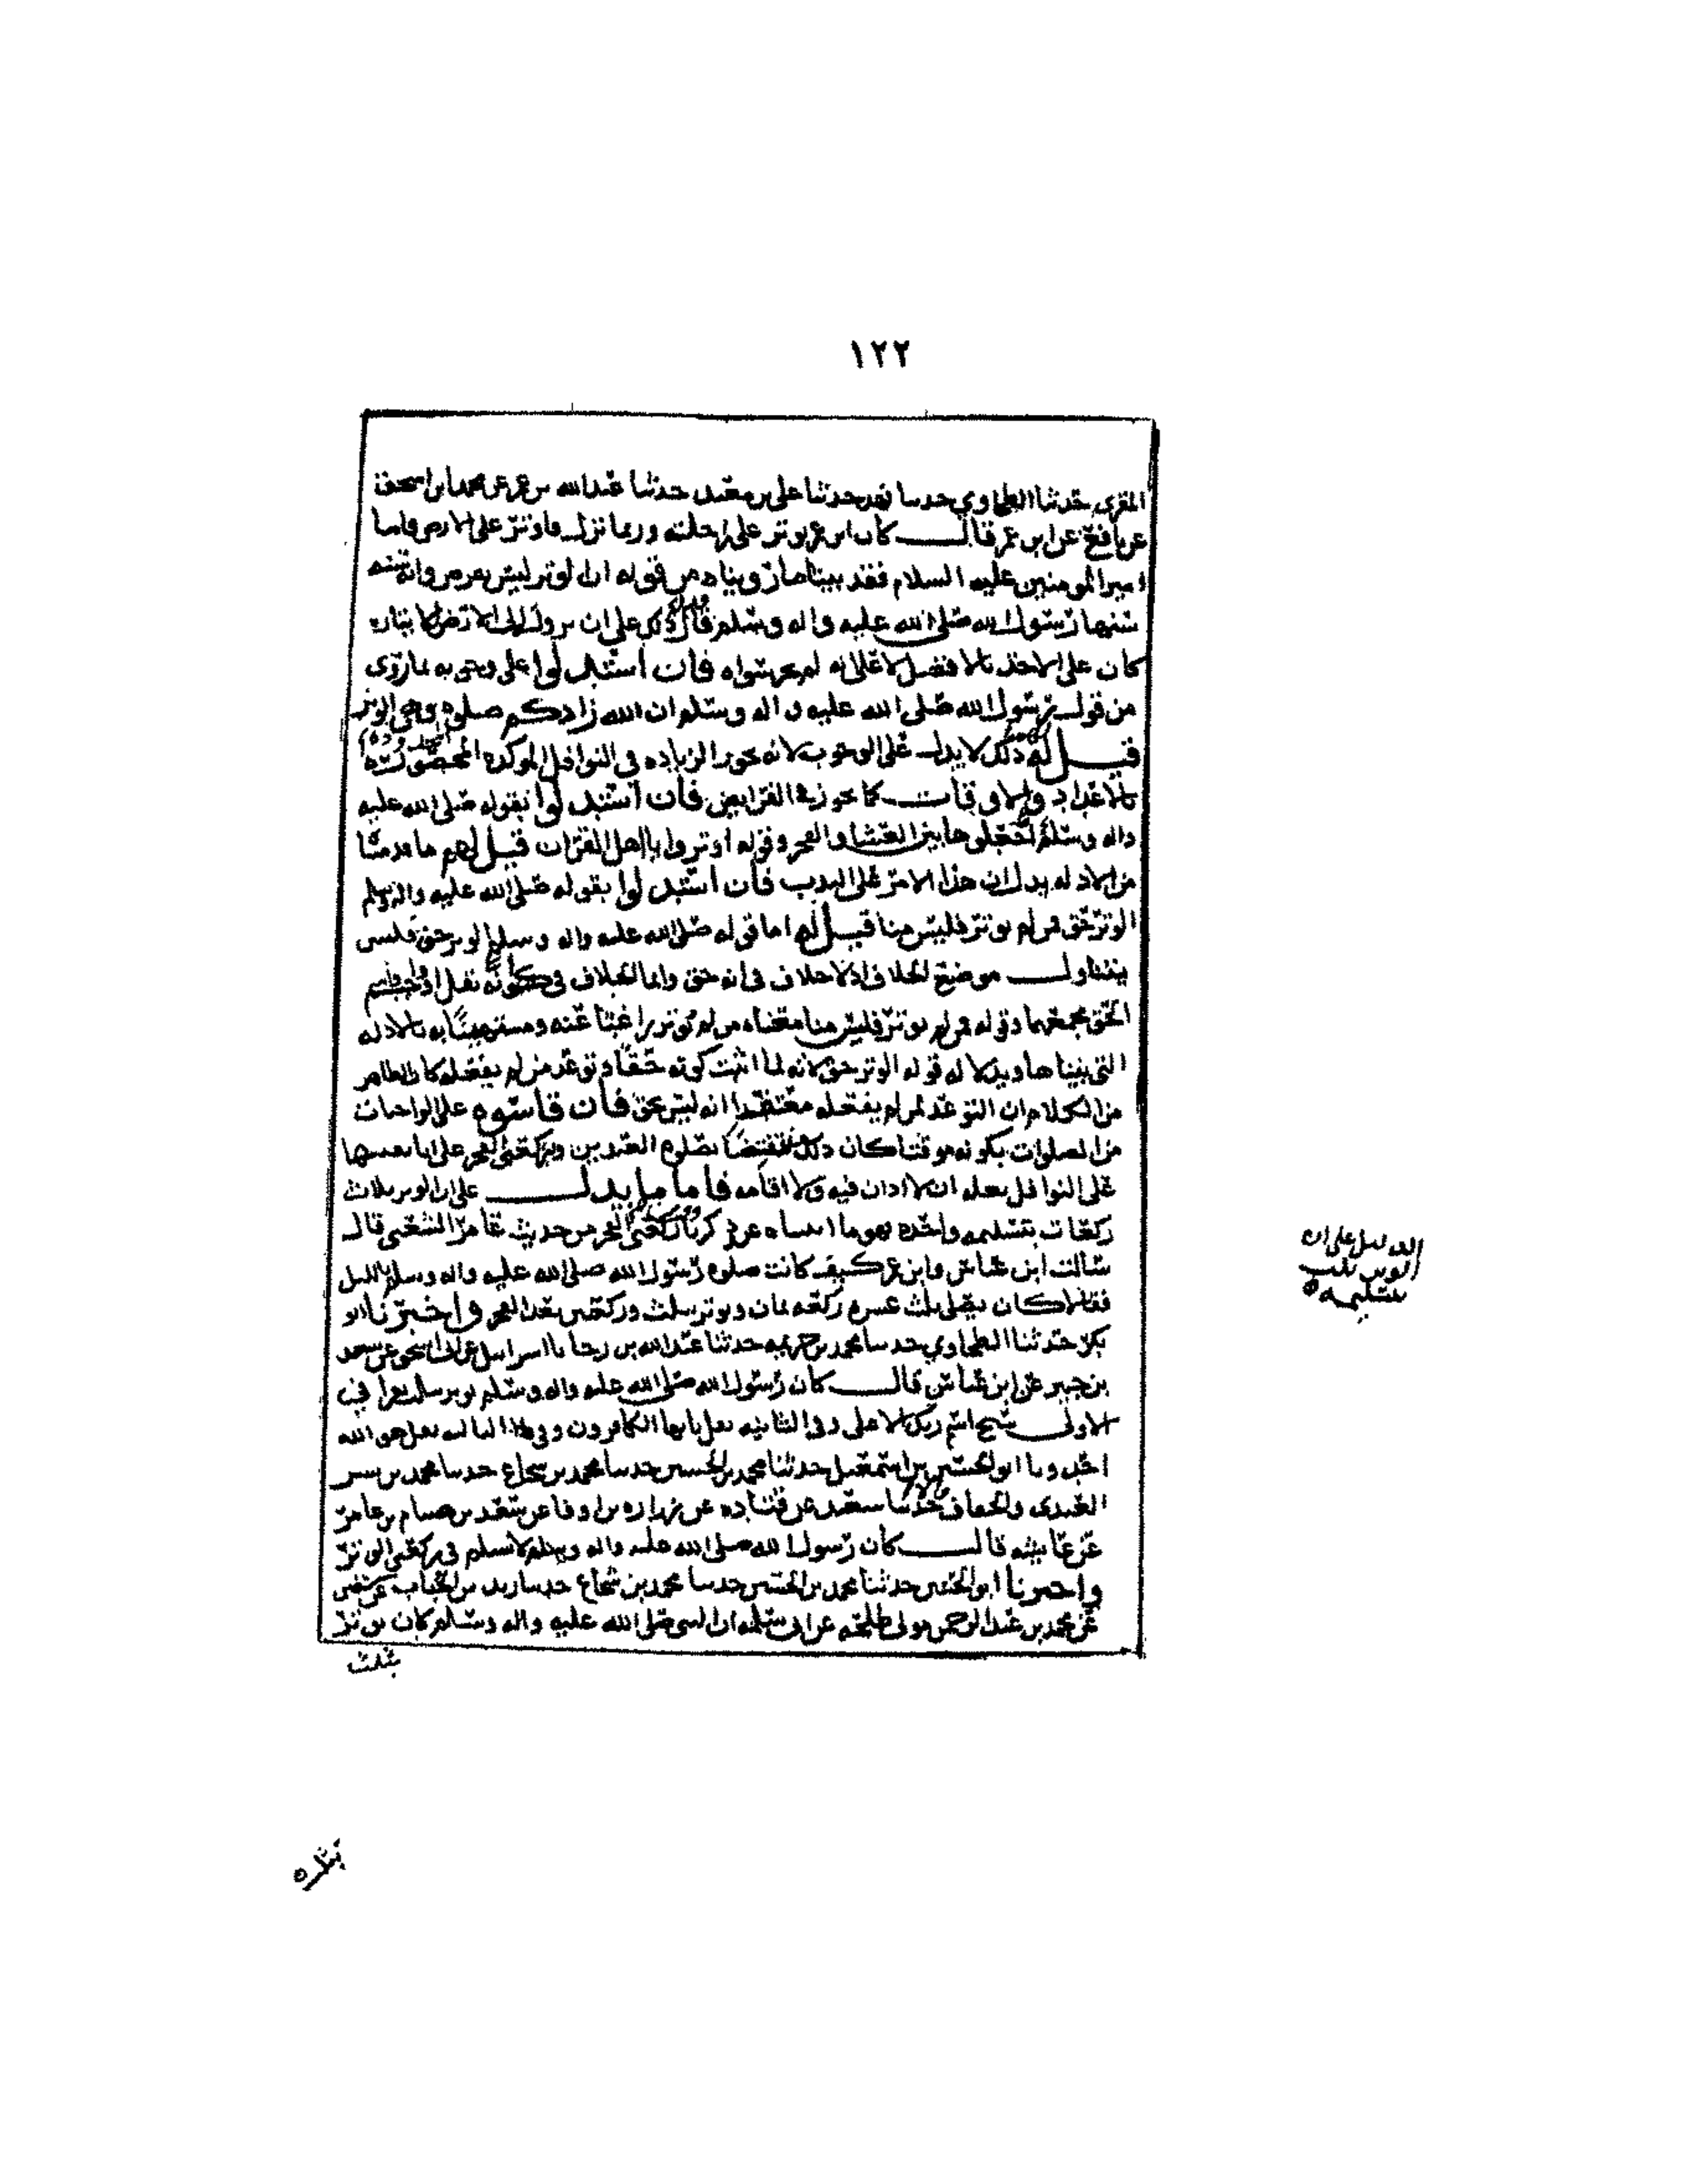 ١٢٢
المقرى حدثنا الطحاوي حدثنا فهد حدثنا على بن معبد حدثنا عبدالله بن عمر عن محمد بن اسحق
عن نافع عن ابن عمر قال كان ابن عمر يوتر على راحلته وربما نزل فاوتر على الارض واما
امير المومنين عليه السلام فقد بينا ما رويناه من قوله ان الوتر ليس بفرض وانه سنه
سنها رسول الله صلى الله عليه واله وسلم فدل ذلك على ان نزوله الى الارض
كان على الاخذ بالافضل لا على انه لم يجز سواه فان استدلوا على وجوبه بما روى
من قول رسول الله صلى الله عليه واله وسلم ان الله زادكم صلوه وهى الوتر
قيل لهم ذلك لا يدل على الوجوب لانه يجوز الزياده فى النوافل الموكده المحصوره
بالاعداد والاوقات كما يجوز فى الفرايض فان استدلوا بقوله صلى الله عليه
واله وسلم اجعلوها بين العشا والفجر وقوله اوتروا يا اهل القران قيل لهم ما قدمنا
من الادله يدل ان هذا الامر على الندب فان استدلوا بقوله صلى الله عليه واله وسلم
الوتر حق فمن لم يوتر فليس منا قيل لهم اما قوله صلى الله عليه واله وسلم الوتر حق فليس
يتناول موضع الخلاف اذ لا خلاف فى انه حق وانما الخلاف فى كونه نفلا او واجبا واسم
الحق يجمعهما وقوله فمن لم يوتر فليس منا معناه من لم يوتر راغبا عنه ومستهينا به بالادله
التى بيناها ويدل له قوله الوتر حق لانه لما اثبت كونه حقا وتوعد من لم يفعله كان الظاهر
من الكلام ان التوعد لمن لم يفعله معتقدا انه ليس بحق فان قاسوه على الواجبات
من الصلوات بكونه موقتا كان ذلك منتقضا بصلوه العيدين وبركعتى الفجر على انا نقيسها
على النوافل بعله ان لا اذان فيه ولا اقامه فاما ما يدل على ان الوتر بثلاث
ركعات بتسليمه واحده فهو ما ركعتى الفجر من حديث عامر الشعبى قال
سالت ابن عباس وابن عمر كيف كانت صلوه رسول الله صلى الله عليه واله وسلم بالليل
فقالا كان يصلى ثلث عشره ركعه ثمان ويوتر بثلث وركعتين بعد الفجر واخبرنا ابو
بكر حدثنا الطحاوي حدثنا محمد بن خزيمه حدثنا عبدالله بن رجا انا اسرائيل عن ابى اسحق عن سعيد
بن جبير عن ابن عباس قال كان رسول الله صلى الله عليه واله وسلم يوتر بثلث يقرا فى
الاولى سبح اسم ربك الاعلى وفى الثانيه بقل يا ايها الكافرون وفى الثالثه بقل هو الله
احد ونا ابو الحسين بن اسمعيل حدثنا محمد بن الحسين حدثنا محمد بن شجاع حدثنا محمد بن بشر
العبدى والخفاف حدثنا سعيد عن قتاده عن زراره بن اوفا عن سعد بن هشام بن عامر
عن عايشه قالت كان رسول الله صلى الله عليه واله وسلم لا يسلم فى ركعتى الوتر
واخبرنا ابو الحسين حدثنا محمد بن الحسين حدثنا محمد بن شجاع حدثنا زيد بن الحباب عن
عن محمد بن عبد الرحمن مولى طلحه عن ابى سلمه ان النبى صلى الله عليه واله وسلم كان يوتر
بثلث
الدليل على ان
الوتر بثلث
بتسليمه